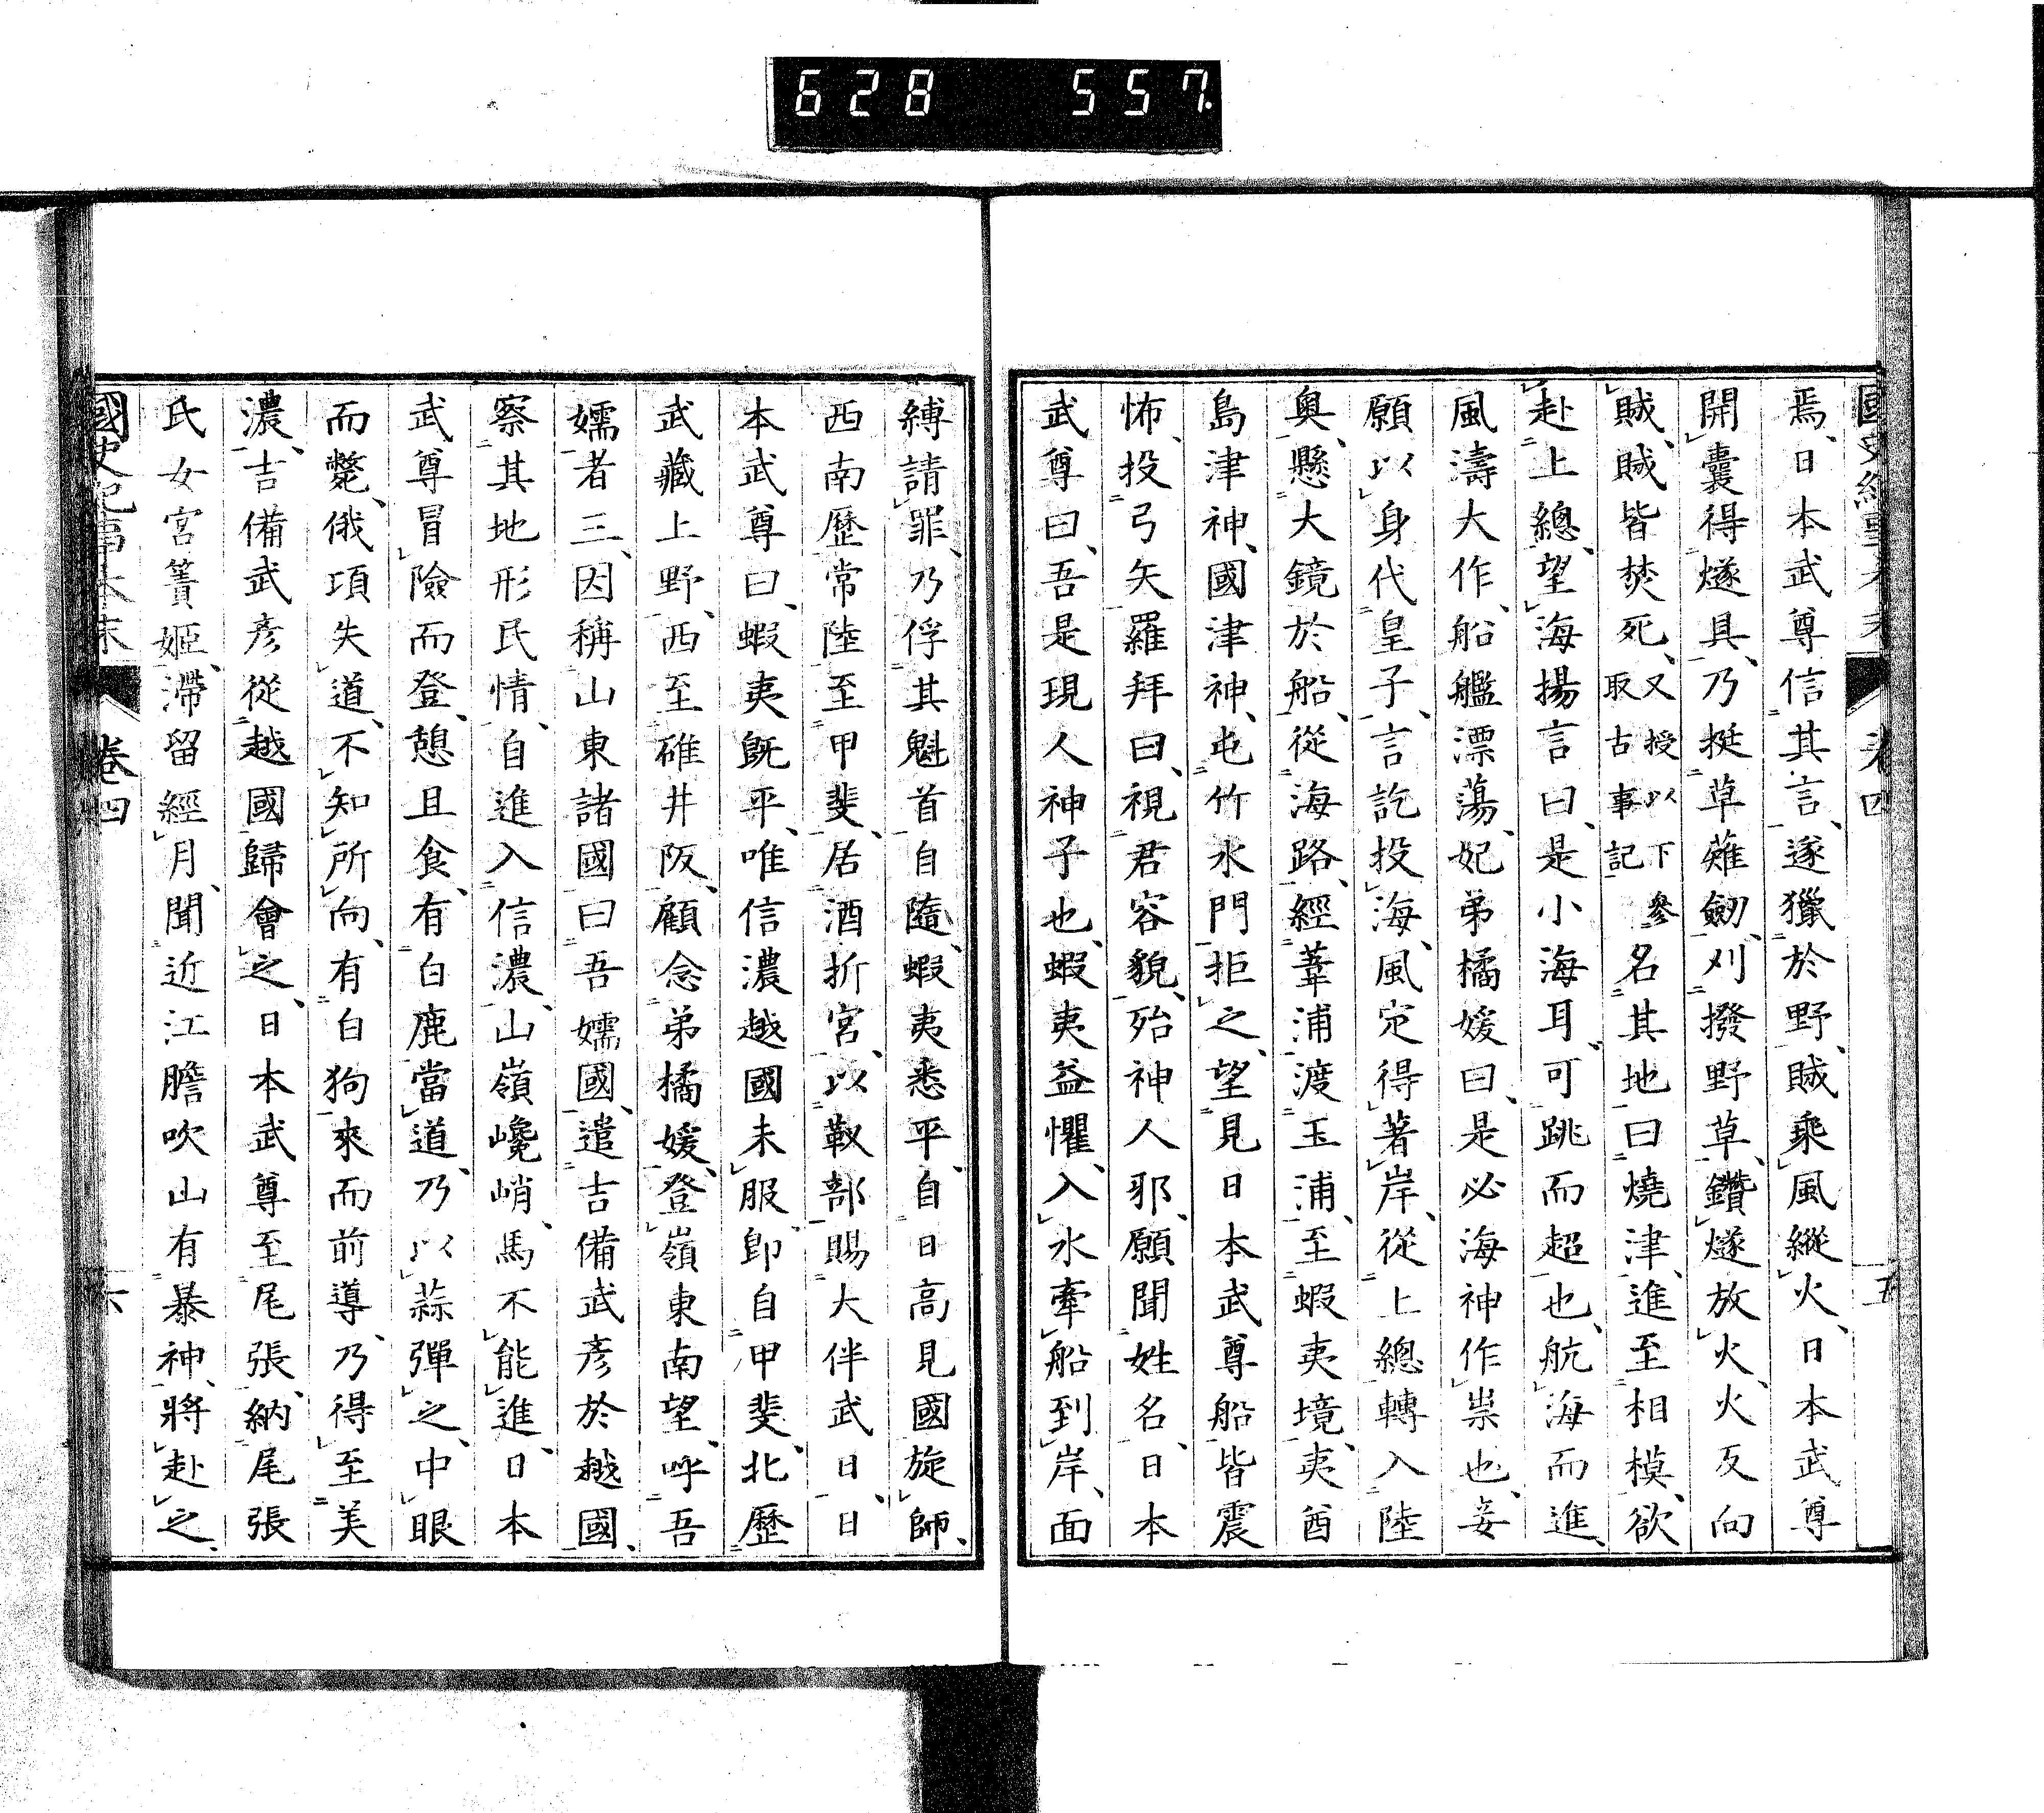 628 557.
國史紀事本末 卷四 五
焉、日本武尊信其言、遂獵於野、賊乘風縱火、日本武尊
開囊得燧具、乃挺草薙劒、刈撥野草、鑽燧放火、火反向
賊、賊皆焚死、又授以下參取古事記名其地曰燒津、進至相模、欲
赴上總、望海揚言曰、是小海耳、可跳而超也、航海而進、
風濤大作、船艦漂蕩、妃弟橘媛曰、是必海神作祟也、妾
願以身代皇子、言訖投海、風定得著岸、從上總轉入陸
奧、懸大鏡於船、從海路、經葦浦渡玉浦、至蝦夷境、夷酋
島津神、國津神、屯竹水門拒之、望見日本武尊船、皆震
怖、投弓矢羅拜曰、視君容貌、殆神人邪、願聞姓名、日本
武尊曰、吾是現人神子也、蝦夷益懼、入水牽船到岸、面
縛請罪、乃俘其魁首自隨、蝦夷悉平、自日高見國旋師、
西南歷常陸至甲斐、居酒折宮、以靫部賜大伴武日、日
本武尊曰、蝦夷既平、唯信濃越國未服、卽自甲斐、北歷
武藏上野、西至碓井阪、顧念弟橘媛、登嶺東南望、呼吾
嬬者三、因稱山東諸國曰吾嬬國、遣吉備武彥於越國、
察其地形民情、自進入信濃、山嶺巉峭、馬不能進、日本
武尊冒險而登、憩且食、有白鹿當道、乃以蒜彈之、中眼
而斃、俄頃失道、不知所向、有白狗來而前導、乃得至美
濃、吉備武彥從越國歸會之、日本武尊至尾張、納尾張
氏女宮簀姬、滯留經月、聞近江膽吹山有暴神、將赴之、
國史紀事本末 卷四 六